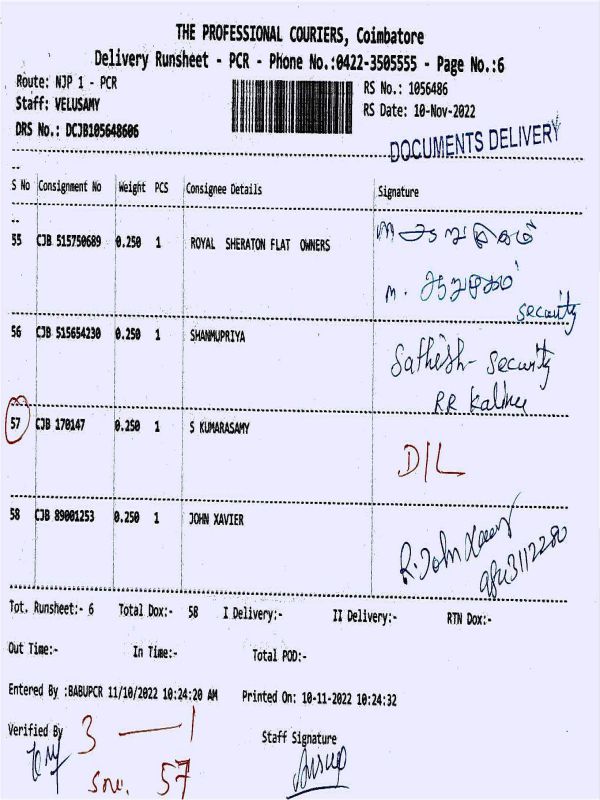 THE PROFESSIONAL COURIERS, Coimbatore
Delivery Runsheet - PCR - Phone No.:0422-3505555 - Page No.:6
Route: NJP 1 - PCR
RS No.: 1056486
Staff: VELUSAMY
RS Date: 10-Nov-2022
DRS No.: DCJB105648606
DOCUMENTS DELIVERY
--
S No Consignment No Weight PCS Consignee Details Signature
--
55 CJB 515750689 0.250 1 ROYAL SHERATON FLAT OWNERS
security
56 CJB 515654230 0.250 1 SHANMUPRIYA
Sathish - security
RR
57 CJB 170147 0.250 1 S KUMARASAMY D/L
58 CJB 89001253 0.250 1 JOHN XAVIER
R. John Xavier
9843112280
Tot. Runsheet:- 6 Total Dox:- 58 I Delivery:- II Delivery:- RTN Dox:-
Out Time:- In Time:- Total POD:-
Entered By :BABUPCR 11/10/2022 10:24:20 AM Printed On: 10-11-2022 10:24:32
Verified By 3 — 1 Staff Signature
57